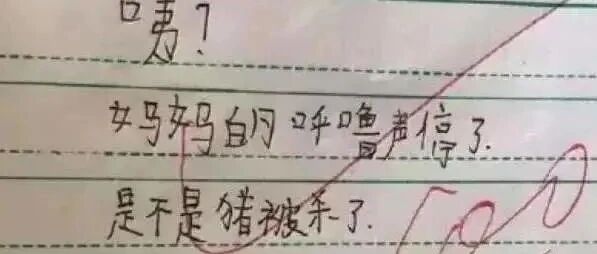 咦？
妈妈的呼噜声停了.
是不是猪被杀了.
100